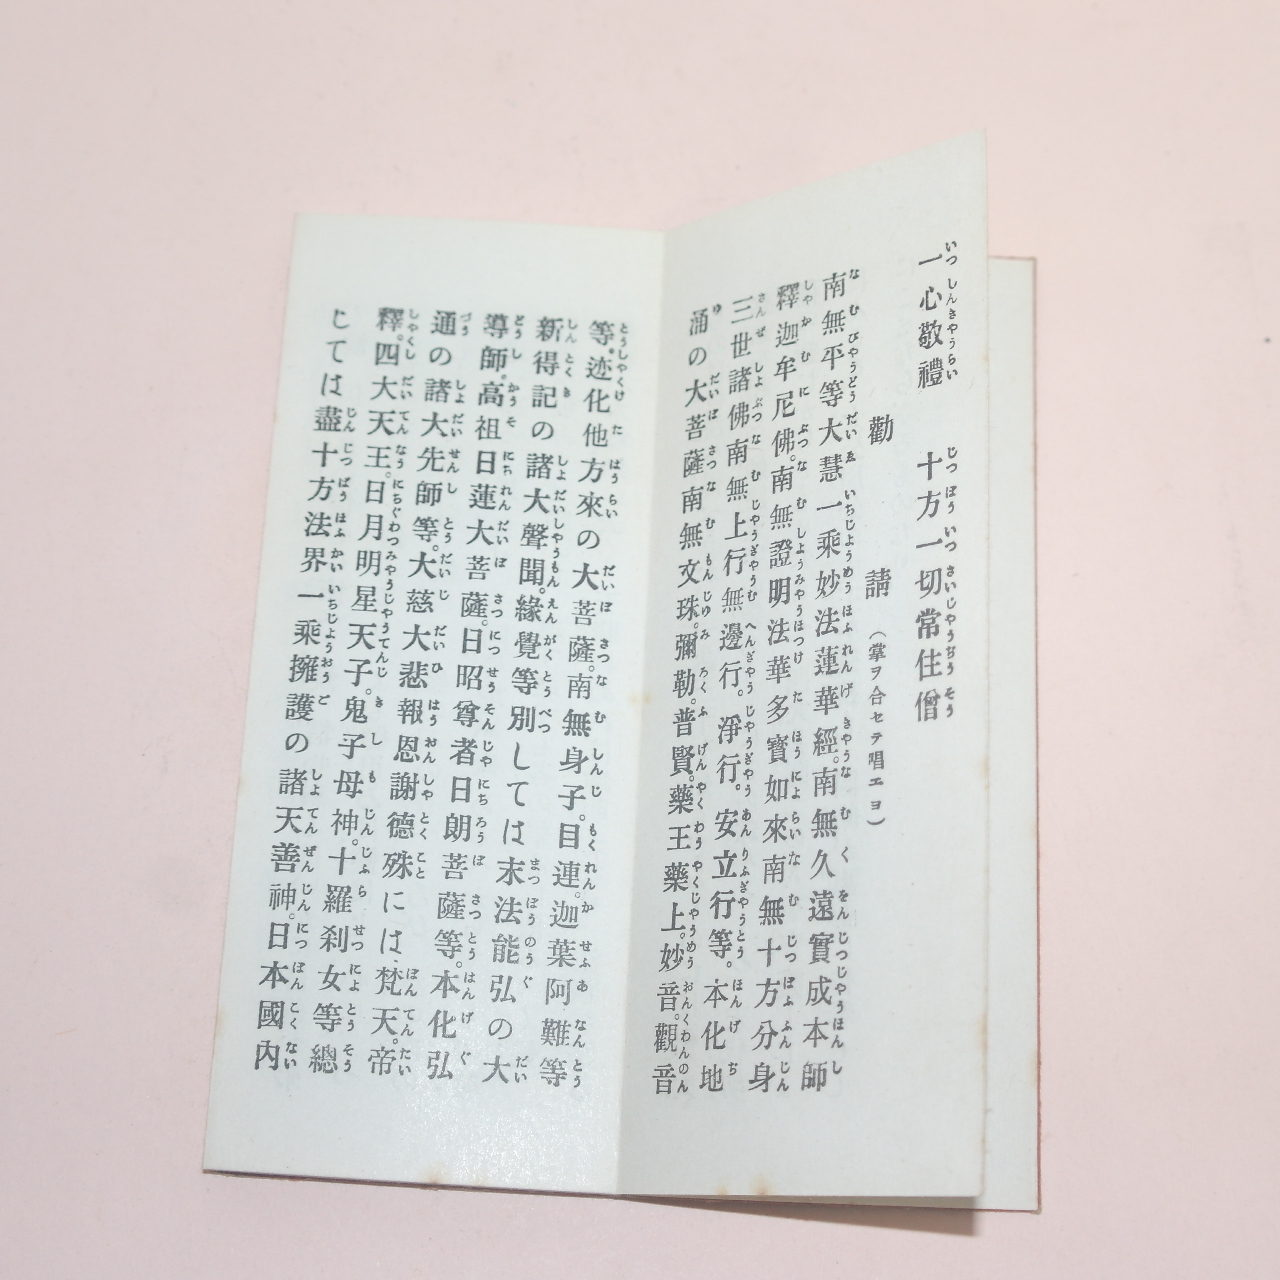 一心敬禮　十方一切常住僧
勸　請（掌ヲ合セテ唱エヨ）
南無平等大慧一乘妙法蓮華經。南無久遠實成本師
釋迦牟尼佛。南無證明法華多寶如來南無十方分身
三世諸佛南無上行無邊行。淨行。安立行等。本化地
涌の大菩薩南無文珠。彌勒。普賢。藥王藥上。妙音。觀音
等。迹化他方來の大菩薩。南無身子。目連。迦葉阿難等
新得記の諸大聲聞。緣覺等別しては末法能弘の大
導師。高祖日蓮大菩薩。日昭尊者日朗菩薩等。本化弘
通の諸大先師等。大慈大悲報恩謝德殊には、梵天。帝
釋。四大天王。日月明星天子。鬼子母神。十羅刹女等總
じては盡十方法界一乘擁護の諸天善神。日本國內